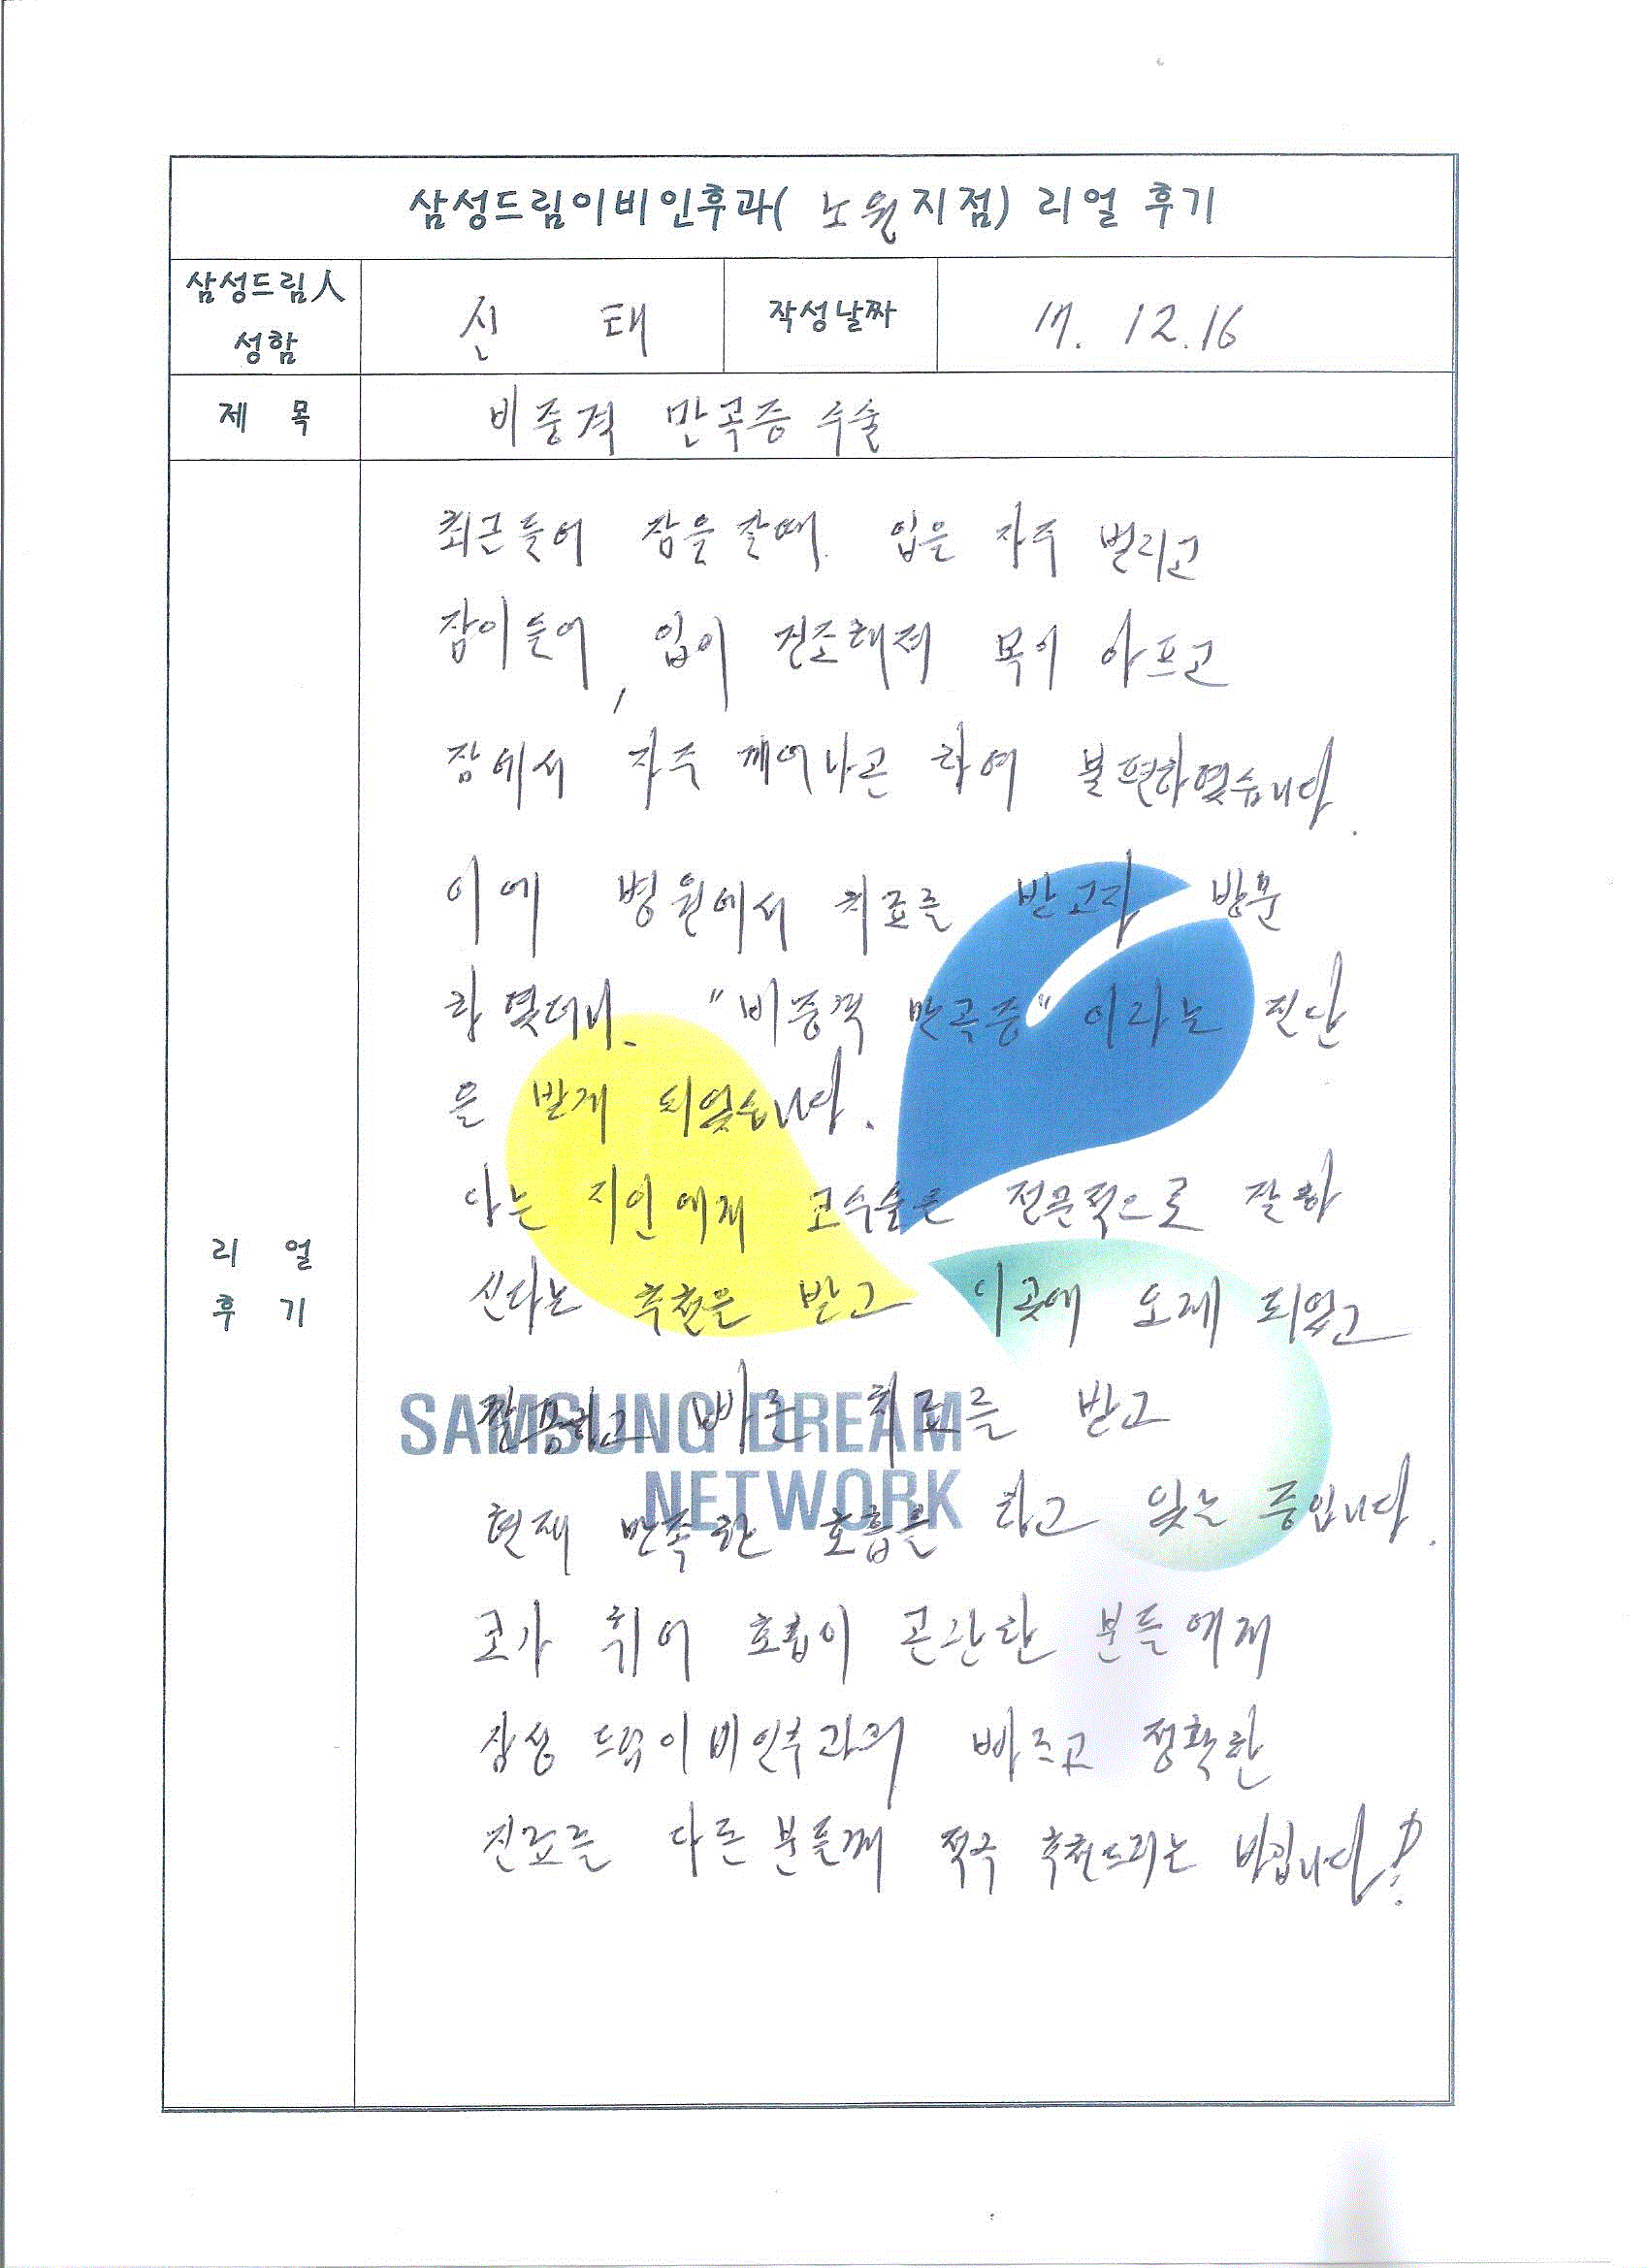 삼성드림이비인후과( 노원지점) 리얼 후기
삼성드림人
성함
신 태
작성날짜
17. 12.16
제 목
비중격 만곡증 수술
리 얼
후 기
최근들어 잠을 잘때 입을 자주 벌리고
잠이들어, 입이 건조해져 목이 아프고
잠에서 자주 깨어나곤 하여 불편하였습니다.
이에 병원에서 치료를 받고자 방문
하였더니. "비중격 만곡증" 이라는 진단
을 받게 되었습니다.
나는 지인에게 코수술을 전문적으로 잘하
신다는 추천을 받고 이곳에 오게 되었고
바른 치료를 받고
현재 만족한 호흡을 하고 있는 중입니다.
코가 휘어 호흡이 곤란한 분들에게
삼성 드림이비인후과의 빠르고 정확한
진료를 다른 분들께 적극 추천드리는 바입니다!
SAMSUNG DREAM
NETWORK